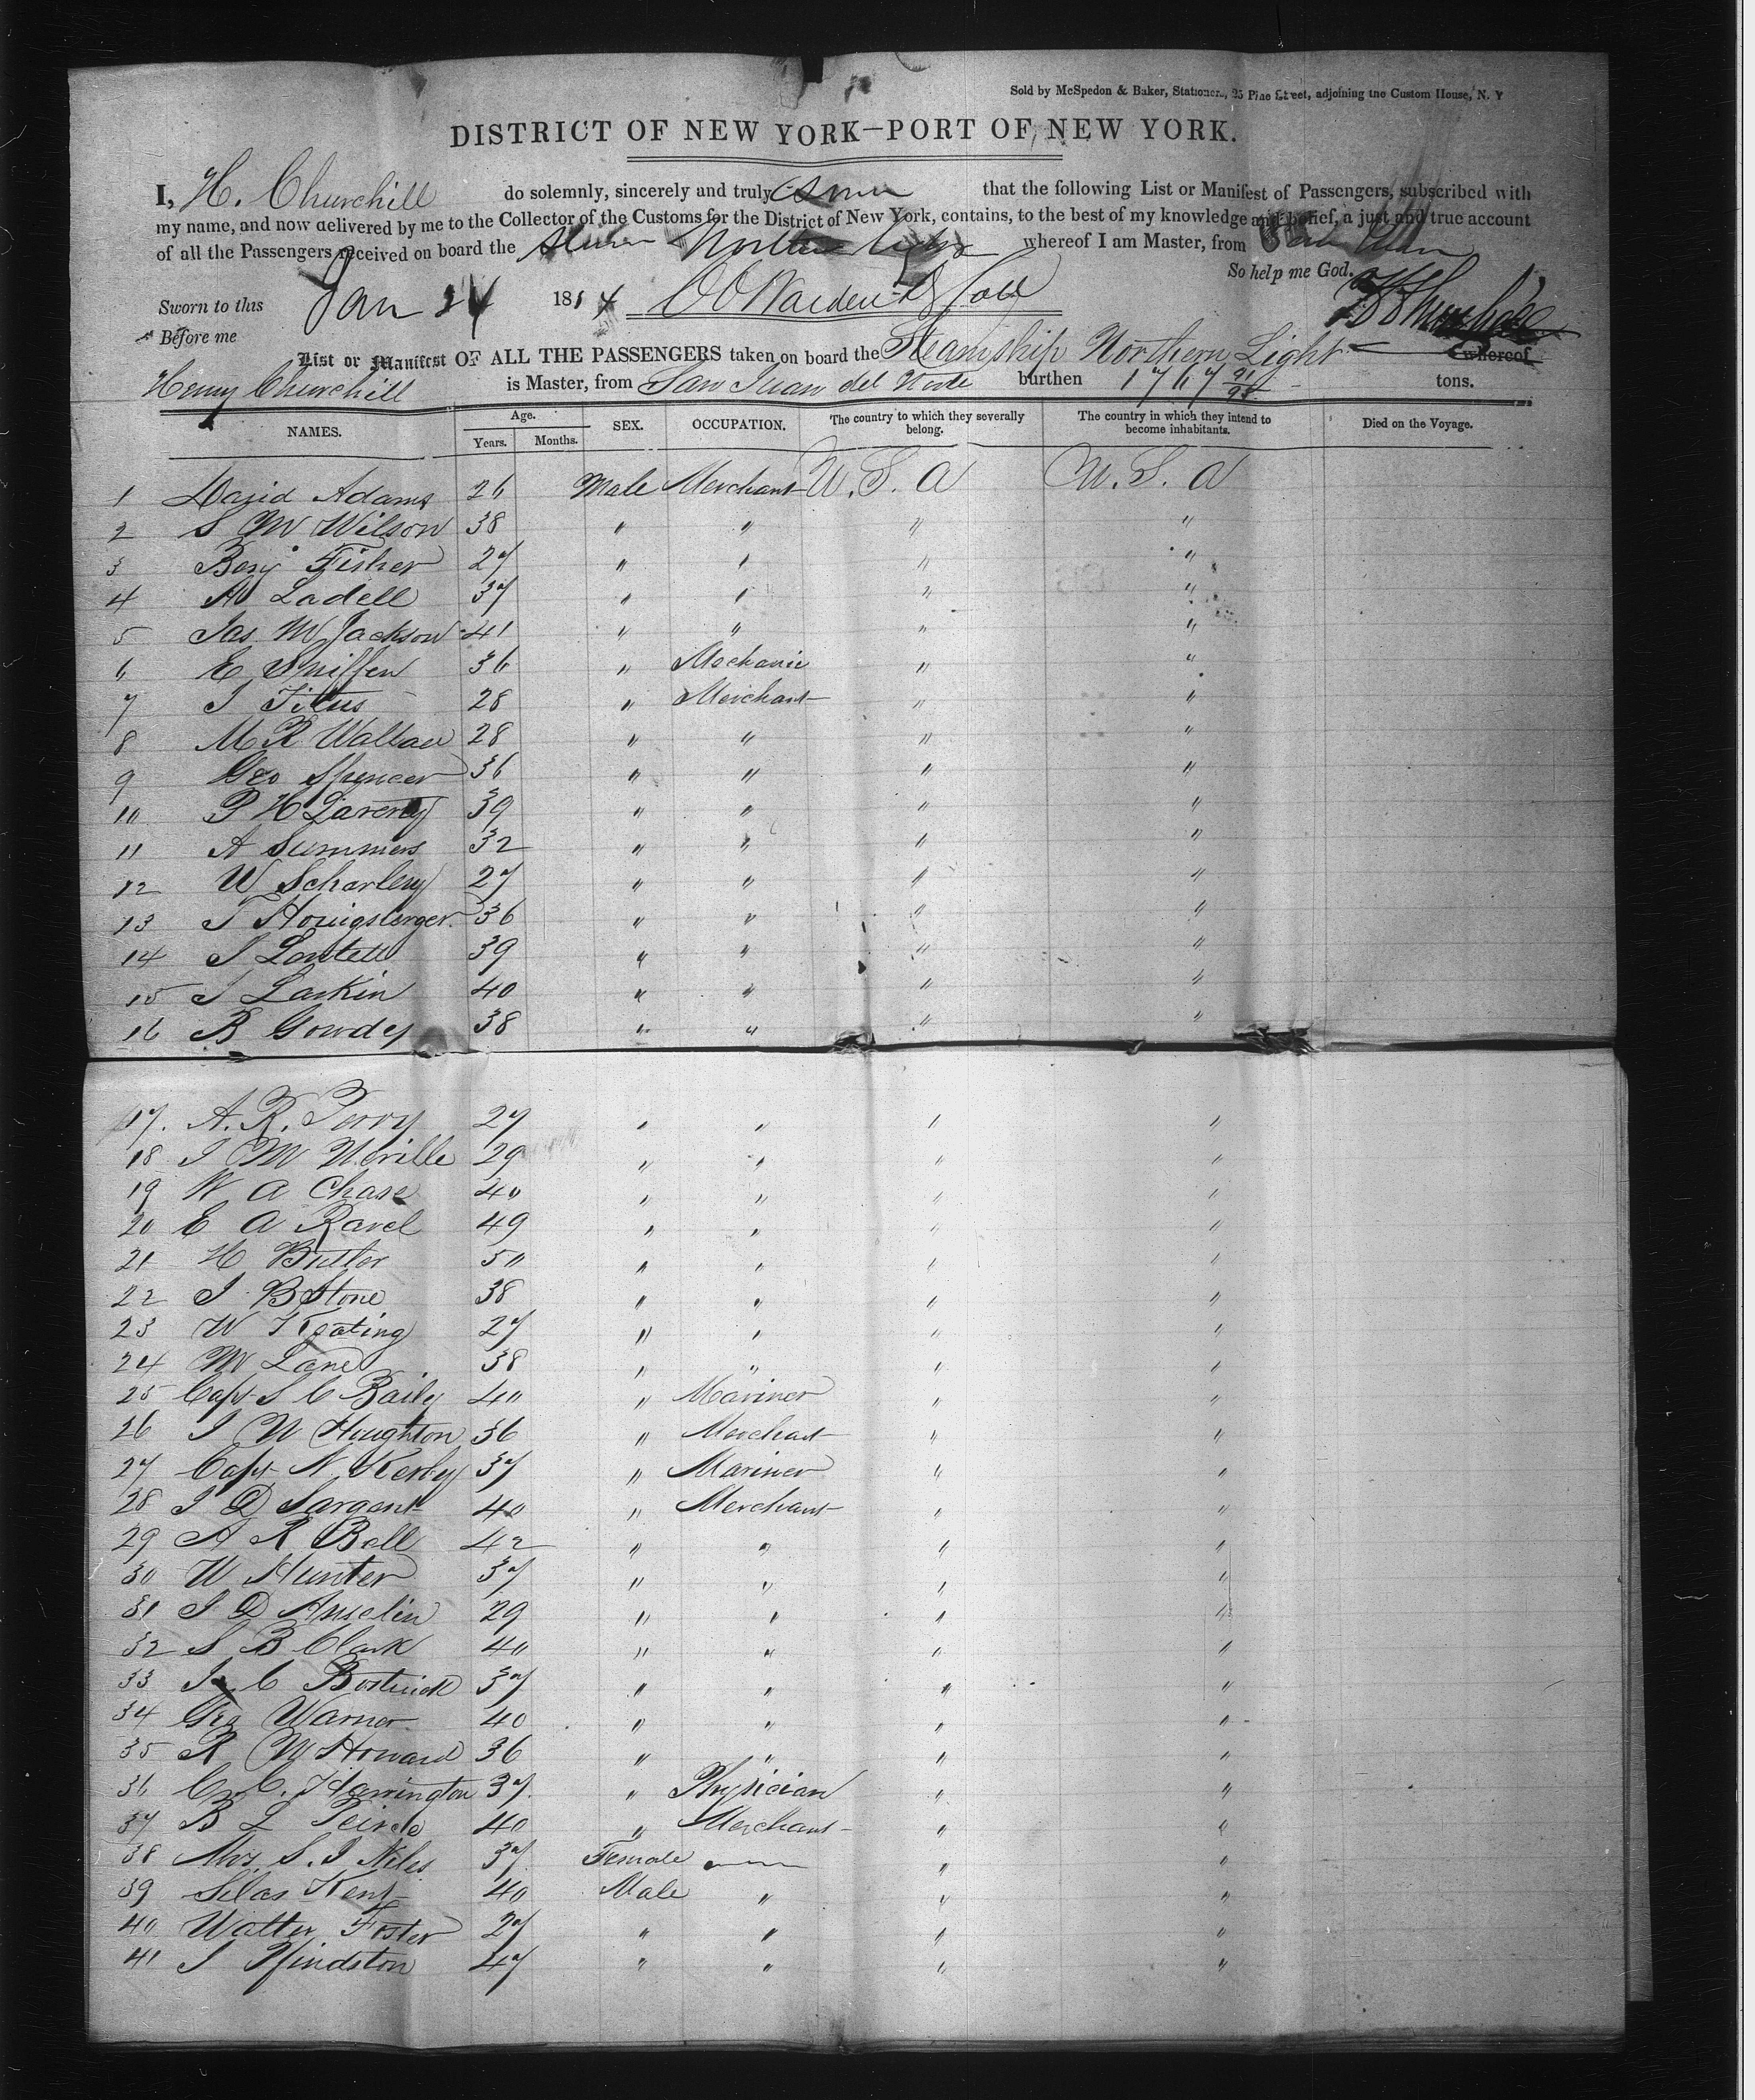 Sold by McSpedon & Baker, Stationers, 25 Pine Street, adjoining the Custom House, N. Y
DISTRICT OF NEW YORK—PORT OF NEW YORK.
I, H. Churchill do solemnly, sincerely and truly that the following List or Manifest of Passengers, subscribed with
my name, and now delivered by me to the Collector of the Customs for the District of New York, contains, to the best of my knowledge and belief, a just and true account
of all the Passengers received on board the Northern Light whereof I am Master, from
So help me God.
Sworn to this Jan 24 1854
Before me
List or Manifest OF ALL THE PASSENGERS taken on board the Steamship Northern Light whereof
Henry Churchill is Master, from San Juan del Norte burthen 1767 91/95 tons.
NAMES. Age. Years. Months. SEX. OCCUPATION. The country to which they severally belong. The country in which they intend to become inhabitants. Died on the Voyage.
1 David Adams 26 Male Merchant U. S. A U. S. A
2 S M Wilson 38 " " " "
3 Benj Fisher 27 " " " "
4 A Ladell 37 " " " "
5 Jas M Jackson 41 " " " "
6 E Sniffen 36 " Mechanic " "
7 J Titus 28 " Merchant " "
8 M R Wallace 28 " " " "
9 Geo Spencer 36 " " " "
10 P H Laverty 39 " " " "
11 A Summers 32 " " " "
12 W 27 " " " "
13 J 36 " " " "
14 J 39 " " " "
15 J Larkin 40 " " " "
16 B Gowdey 38 " " " "
17. A. R. Perry 27 " " " "
18 J M Neville 29 " " " "
19 W A Chase 40 " " " "
20 E A Ravel 49 " " " "
21 H Butler 50 " " " "
22 J B Stone 38 " " " "
23 W Keating 27 " " " "
24 M Lane 38 " " " "
25 Capt S C Baily 40 " Mariner " "
26 J W Houghton 36 " Merchant " "
27 Capt N Kerby 37 " Mariner " "
28 J D Sargent 40 " Merchant " "
29 A R Bell 42 " " " "
30 W Hunter 37 " " " "
31 J D Anselin 29 " " " "
32 S B Clark 40 " " " "
33 J C Bostwick 37 " " " "
34 Geo Warner 40 " " " "
35 R M Howard 36 " " " "
36 C. Harrington 37 " Physician " "
37 B L Peirce 40 " Merchant " "
38 Mrs. S. J Niles 37 Female " "
39 Silas Kent 40 Male " " "
40 Walter Foster 27 " " " "
41 J 47 " " " "